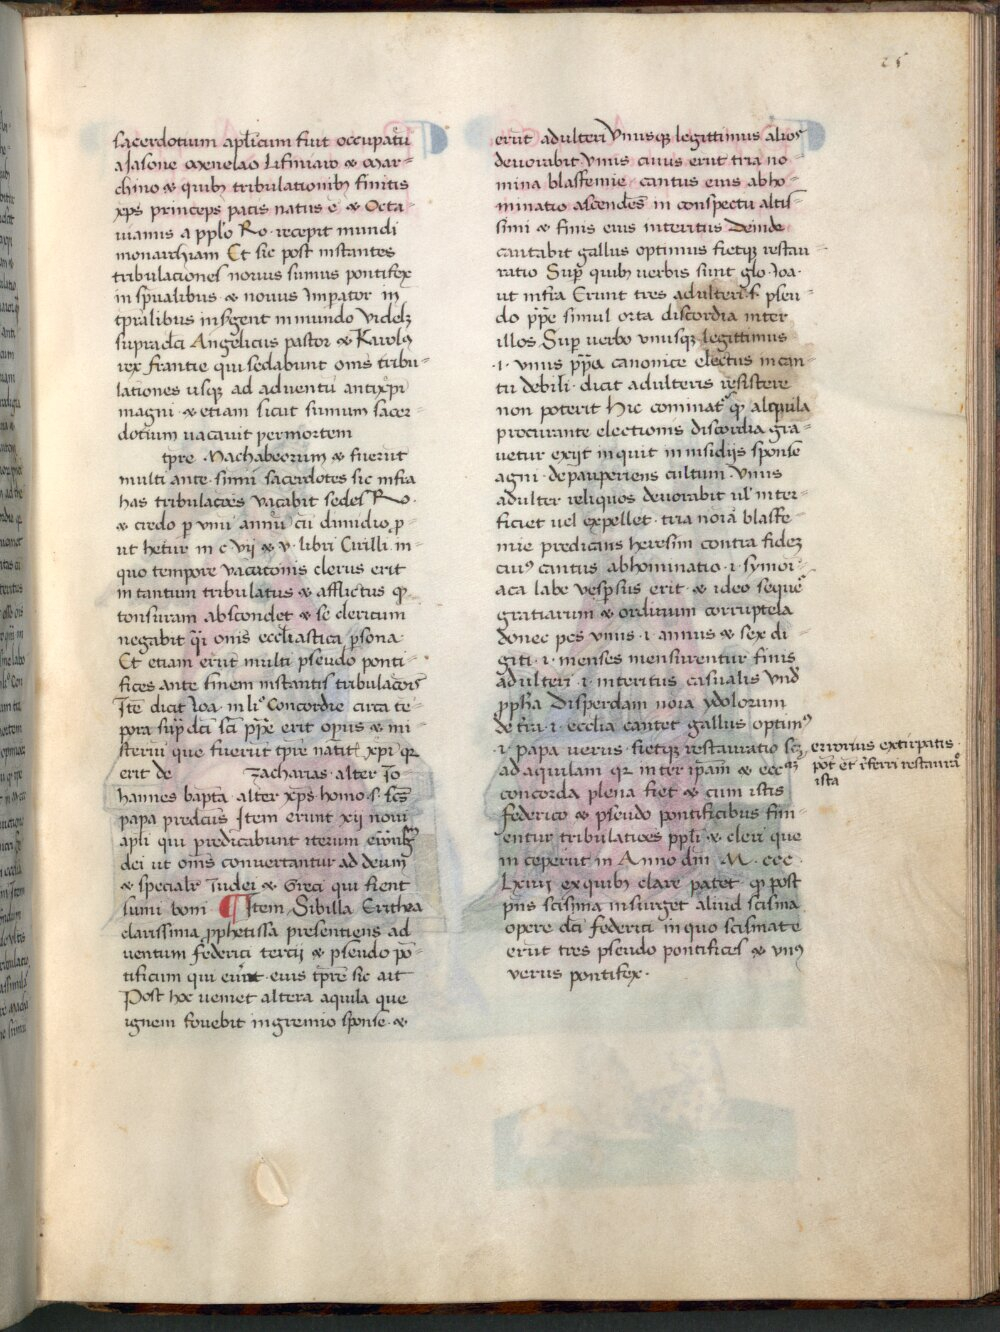 25
sacerdotium aplicum fuit occupatū
a Jasone Menelao Lisimaco & Mar-
chino & quibꝫ tribulationibꝫ finitis
xp̄s princeps pacis natus ē & Octa-
uianus a pplo Ro. recepit mundi
monarchiam Et sic post instantes
tribulationes nouus sumus pontifex
in spūalibus & nouus Impator in
tp̄ralibus insꝰgent in mundo Videlꝫ
supradci Angelicus pastor & Karolꝰ
rex francie qui sedabunt om̄s tribu-
lationes usqꝫ ad aduentū antixp̄i
magni & etiam sicut sumum sacer-
dotium uacauit per mortem
tpre Machabeorum & fuerūt
multi ante simi sacerdotes sic infra
has tribulacōes vacabit sedes Ro.
& credo p vnū annū cū dimidio p
ut hetur in c vij & v. libri Cirilli in
quo tempore vacationis clerus erit
in tantum tribulatus & afflictus ꝙ
tonsuram abscondet & se clericum
negabit q̄i om̄is eccl̄iastica p̄sona
Et etiam erūt multi pseudo ponti-
fices ante finem instantis tribulacōis
Itē dicit Ioa. in li° Concordie circa te-
pora sup̄ dcī scī pp̄e erit opus & mi-
sterium que fuerūt tpre natiūt xpi qꝛ
erit de zacharias alter Io-
hannes bapta alter xp̄s homo s. scs
papa predcūs Item erunt xij noui
apli qui predicabunt iterum euāngm
dei ut om̄s conuertantur ad deum
& specialr Iudei & Greci qui fient
sumi boni ¶ Item Sibilla Erithea
clarissima pphetissa presentiens ad
uentum federici tercij & pseudo pō-
tificum qui erūt eius tpre sic ait
Post hoc ueniet altera aquila que
ignem fouebit in gremio sponse &
erūt adulteri Vnusqꝫ legittimus alios
deuorabit Vnus cuius erūt tria no-
mina blasfemie cantus eius abho-
minatio ascendēs in conspectu altis-
simi & finis eius interitus Deinde
cantabit gallus optimus fietqꝫ restau-
ratio Sup quibꝫ verbis sunt glo. Ioa.
ut infra Erunt tres adulteri s. pseu-
do ppe simul orta discordia inter
illos Sup verbo vnusqꝫ legittimus
.i. vnus ppa canonice electus in can-
tu debili dicit adulteris resistere
non poterit Hic cominat ꝙ aliquila
procurante electionis discordia gra-
uetur exijt inquit in insidijs sponse
agni depauperiens cultum Vnus
adulter reliquos deuorabit ul' inter-
ficiet uel expellet tria noīa blasfe-
mie predicans heresim contra fidez
cuiꝰ cantus abhominatio .i. symoi-
aca labe vespsus erit & ideo seque
gratiarum & orditum corruptela
donec pes vnus .i. annus & sex di-
giti .i. menses mensurentur finis
adulteri .i. interitus casualis Vnd
ppha Disperdam noīa ydolorum
de tra .i. ecclia cantet gallus optimꝰ
.i. papa uerus fietqꝫ restauratio scꝫ
ad aquilam qꝛ inter ipam & ecc
concorda plena fiet & cum istis
federico & pseudo pontificibus fini-
entur tribulatōes ppli & cleri que
in ceperūt in Anno dnī M. ccc.
Lxiiij ex quibꝫ clare patet ꝙ post
pn̄s scisma insurget aliud scisma
opere dcī federici in quo scismate
erūt tres pseudo pontifices & vnꝰ
verus pontifex.
erroribus extirpatis
pōt ēt
ista